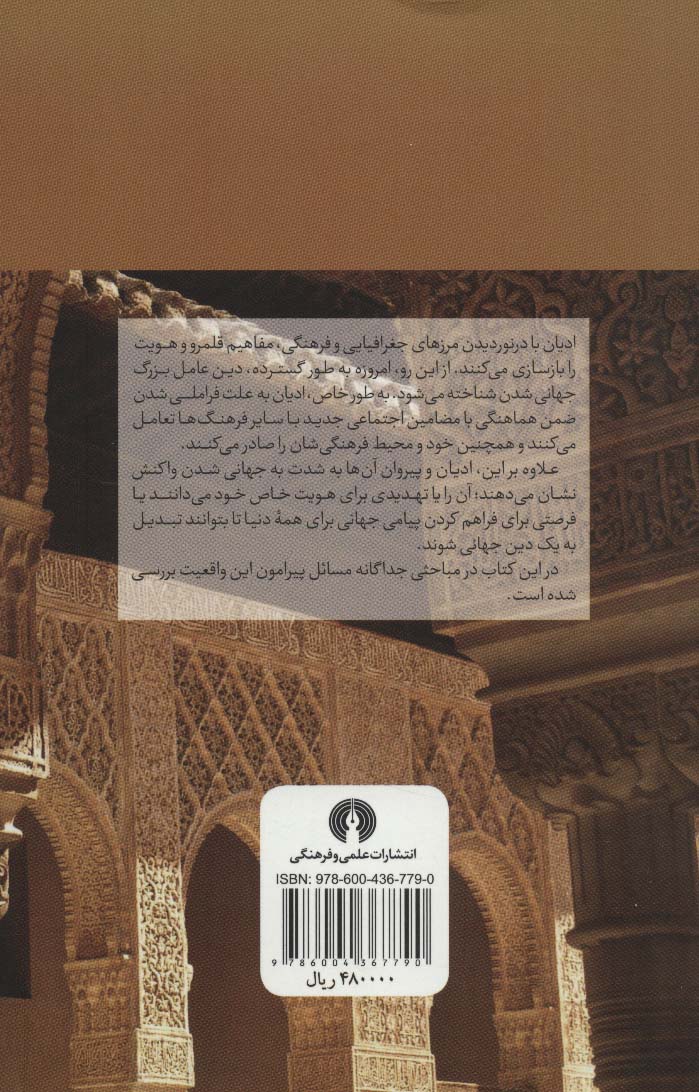 ادیان با درنوردیدن مرزهای جغرافیایی و فرهنگی، مفاهیم قلمرو و هویت
را بازسازی می‌کنند. از این رو، امروزه به طور گسترده، دین عامل بزرگ
جهانی شدن شناخته می‌شود. به طور خاص، ادیان به علت فراملی شدن
ضمن هماهنگی با مضامین اجتماعی جدید با سایر فرهنگ‌ها تعامل
می‌کنند و همچنین خود و محیط فرهنگی‌شان را صادر می‌کنند.
علاوه بر این، ادیان و پیروان آن‌ها به شدت به جهانی شدن واکنش
نشان می‌دهند؛ آن را یا تهدیدی برای هویت خاص خود می‌دانند یا
فرصتی برای فراهم کردن پیامی جهانی برای همهٔ دنیا تا بتوانند تبدیل
به یک دین جهانی شوند.
در این کتاب در مباحثی جداگانه مسائل پیرامون این واقعیت بررسی
شده است.
انتشارات علمی و فرهنگی
ISBN: 978-600-436-779-0
9 786004 367790
۴۸۰۰۰۰ ریال